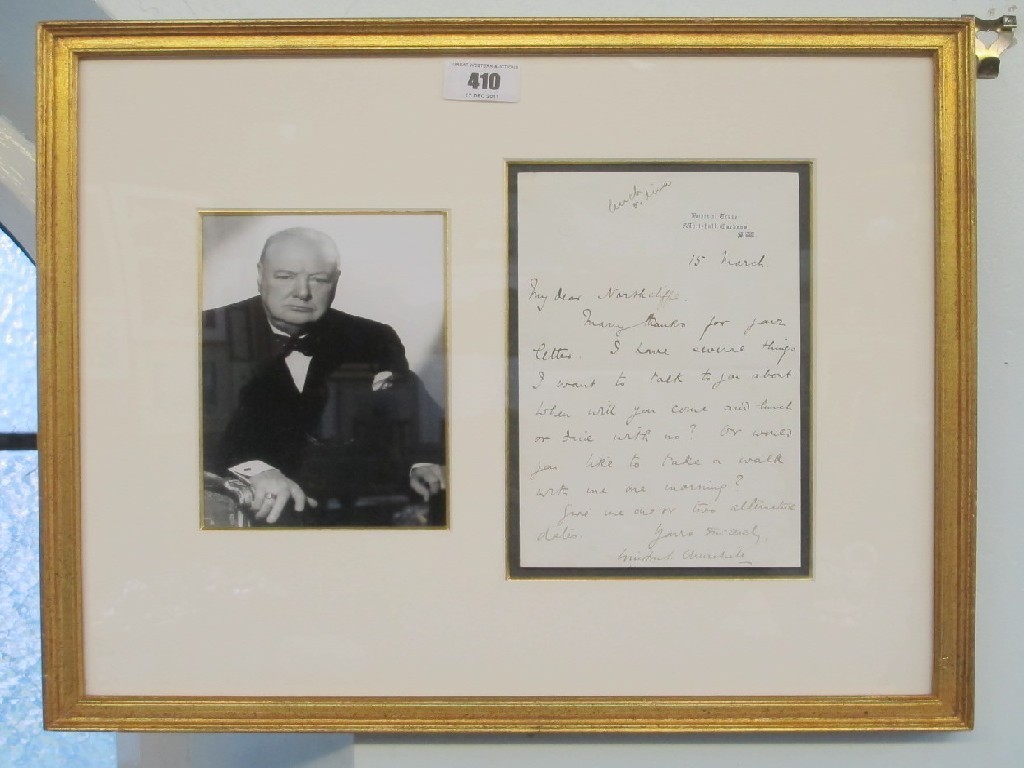 GREAT WESTERN AUCTIONS
410
lunch
15 March
My dear Northcliffe.
Many thanks for your
letter. I have several things
I want to talk to you about
When will you come and lunch
or dine with us? Or would
you like to take a walk
with me one morning?
Give me one or two alternative
dates. Yours sincerely,
Winston S Churchill